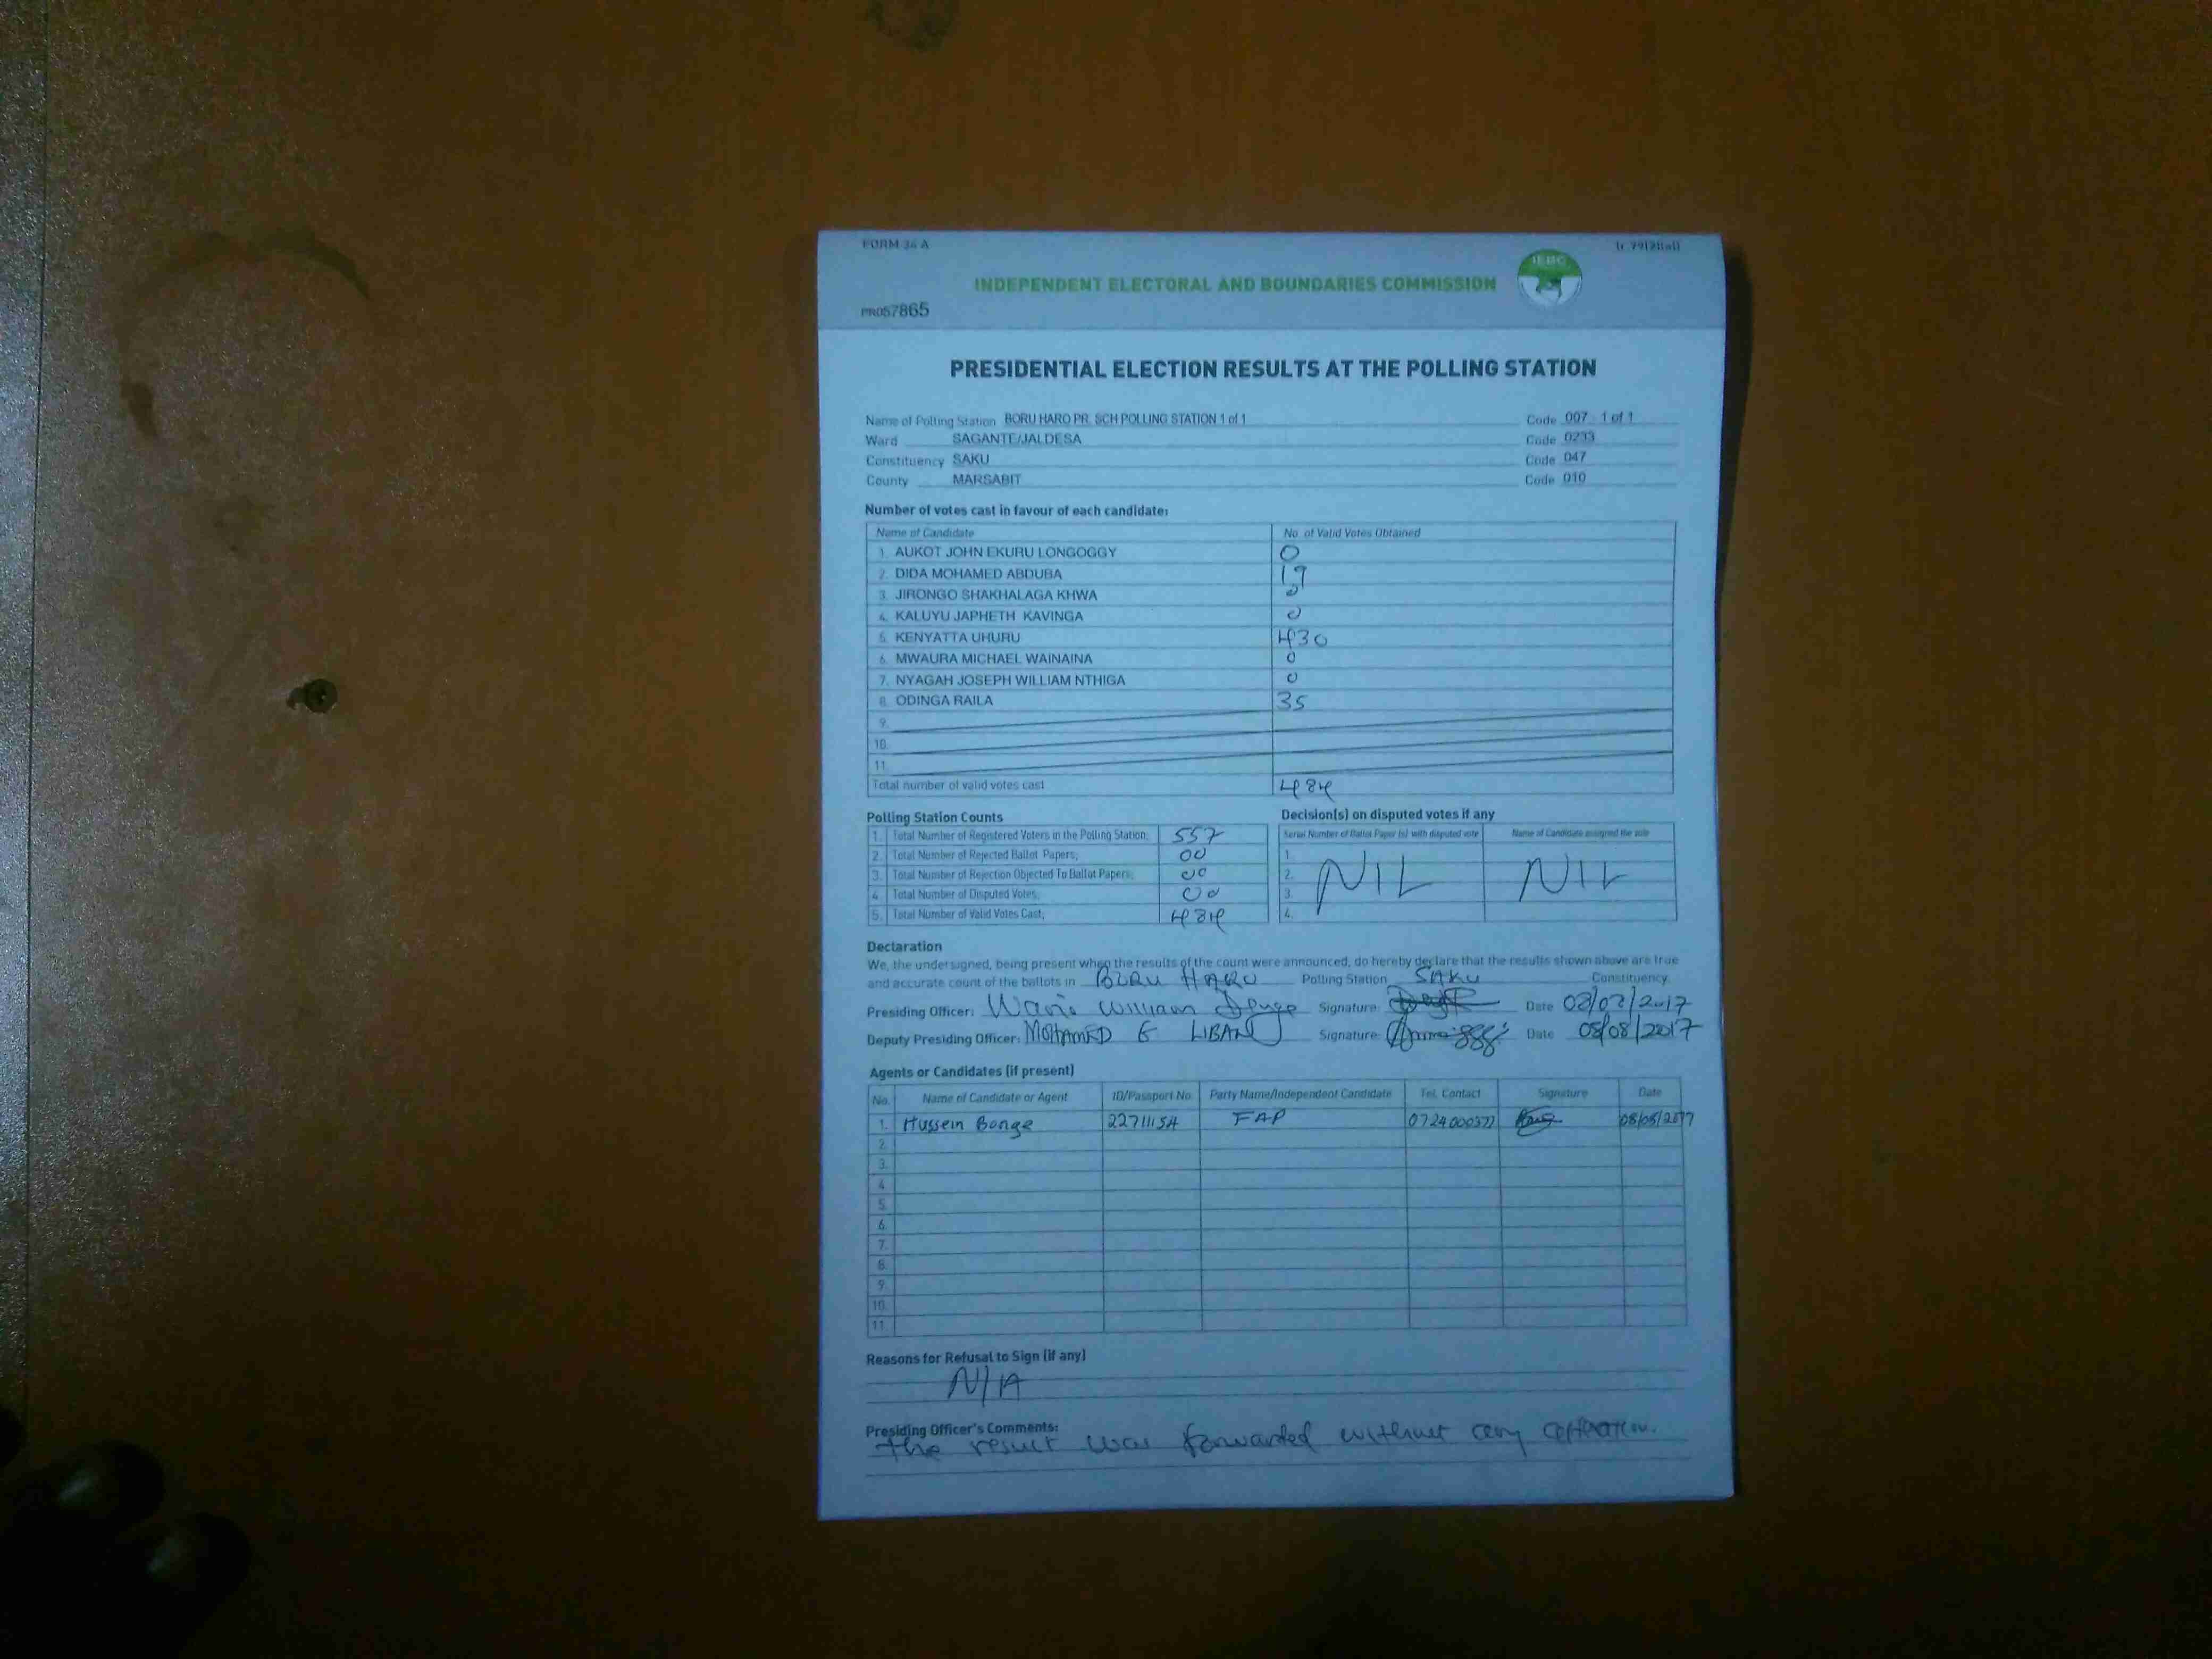 FORM 34 A
INDEPENDENT ELECTORAL AND BOUNDARIES COMMISSION
IEBC
PR057865
PRESIDENTIAL ELECTION RESULTS AT THE POLLING STATION
Name of Polling Station BORU HARO PR. SCH POLLING STATION 1 of 1 Code 007 - 1 of 1
Ward SAGANTE/JALDESA Code 0233
Constituency SAKU Code 047
County MARSABIT Code 010
Number of votes cast in favour of each candidate:
Name of Candidate No. of Valid Votes Obtained
1. AUKOT JOHN EKURU LONGOGGY 0
2. DIDA MOHAMED ABDUBA 19
3. JIRONGO SHAKHALAGA KHWA 0
4. KALUYU JAPHETH KAVINGA 0
5. KENYATTA UHURU 430
6. MWAURA MICHAEL WAINAINA 0
7. NYAGAH JOSEPH WILLIAM NTHIGA 0
8. ODINGA RAILA 35
9.
10.
11.
Total number of valid votes cast 484
Polling Station Counts
1. Total Number of Registered Voters in the Polling Station; 557
2. Total Number of Rejected Ballot Papers; 00
3. Total Number of Rejection Objected To Ballot Papers; 00
4. Total Number of Disputed Votes; 00
5. Total Number of Valid Votes Cast; 484
Decision(s) on disputed votes if any
Serial Number of Ballot Paper (s) with disputed vote Name of Candidate assigned the vote
1.
2. NIL NIL
3.
4.
Declaration
We, the undersigned, being present when the results of the count were announced, do hereby declare that the results shown above are true
and accurate count of the ballots in BORU HARO Polling Station SAKU Constituency.
Presiding Officer: William Signature: Date
Deputy Presiding Officer: MOHAMED G LIBAN Signature: Date 08/08/2017
Agents or Candidates (if present)
No. Name of Candidate or Agent ID/Passport No. Party Name/Independent Candidate Tel. Contact Signature Date
1. Hussein Bonge FAP 08/08/2017
2.
3.
4.
5.
6.
7.
8.
9.
10.
11.
Reasons for Refusal to Sign (if any)
N/A
Presiding Officer's Comments:
The result was forwarded without any